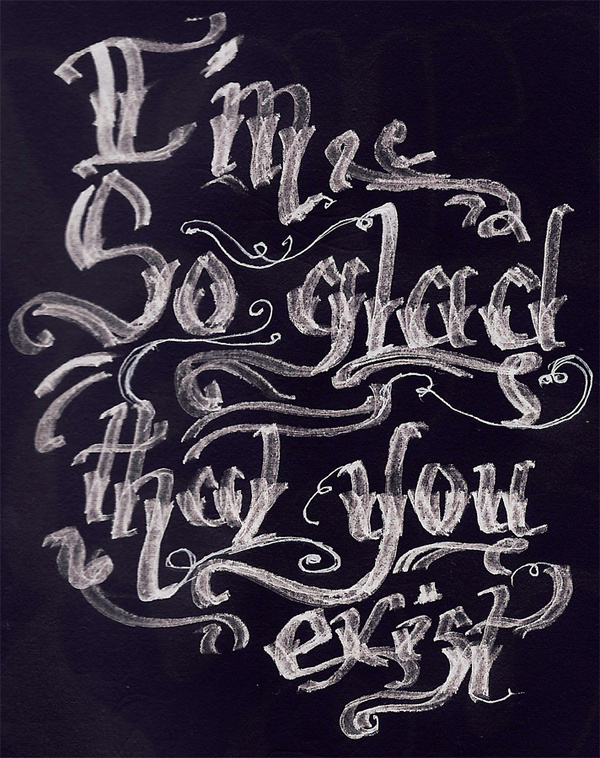 I'm
So glad
that you
exist